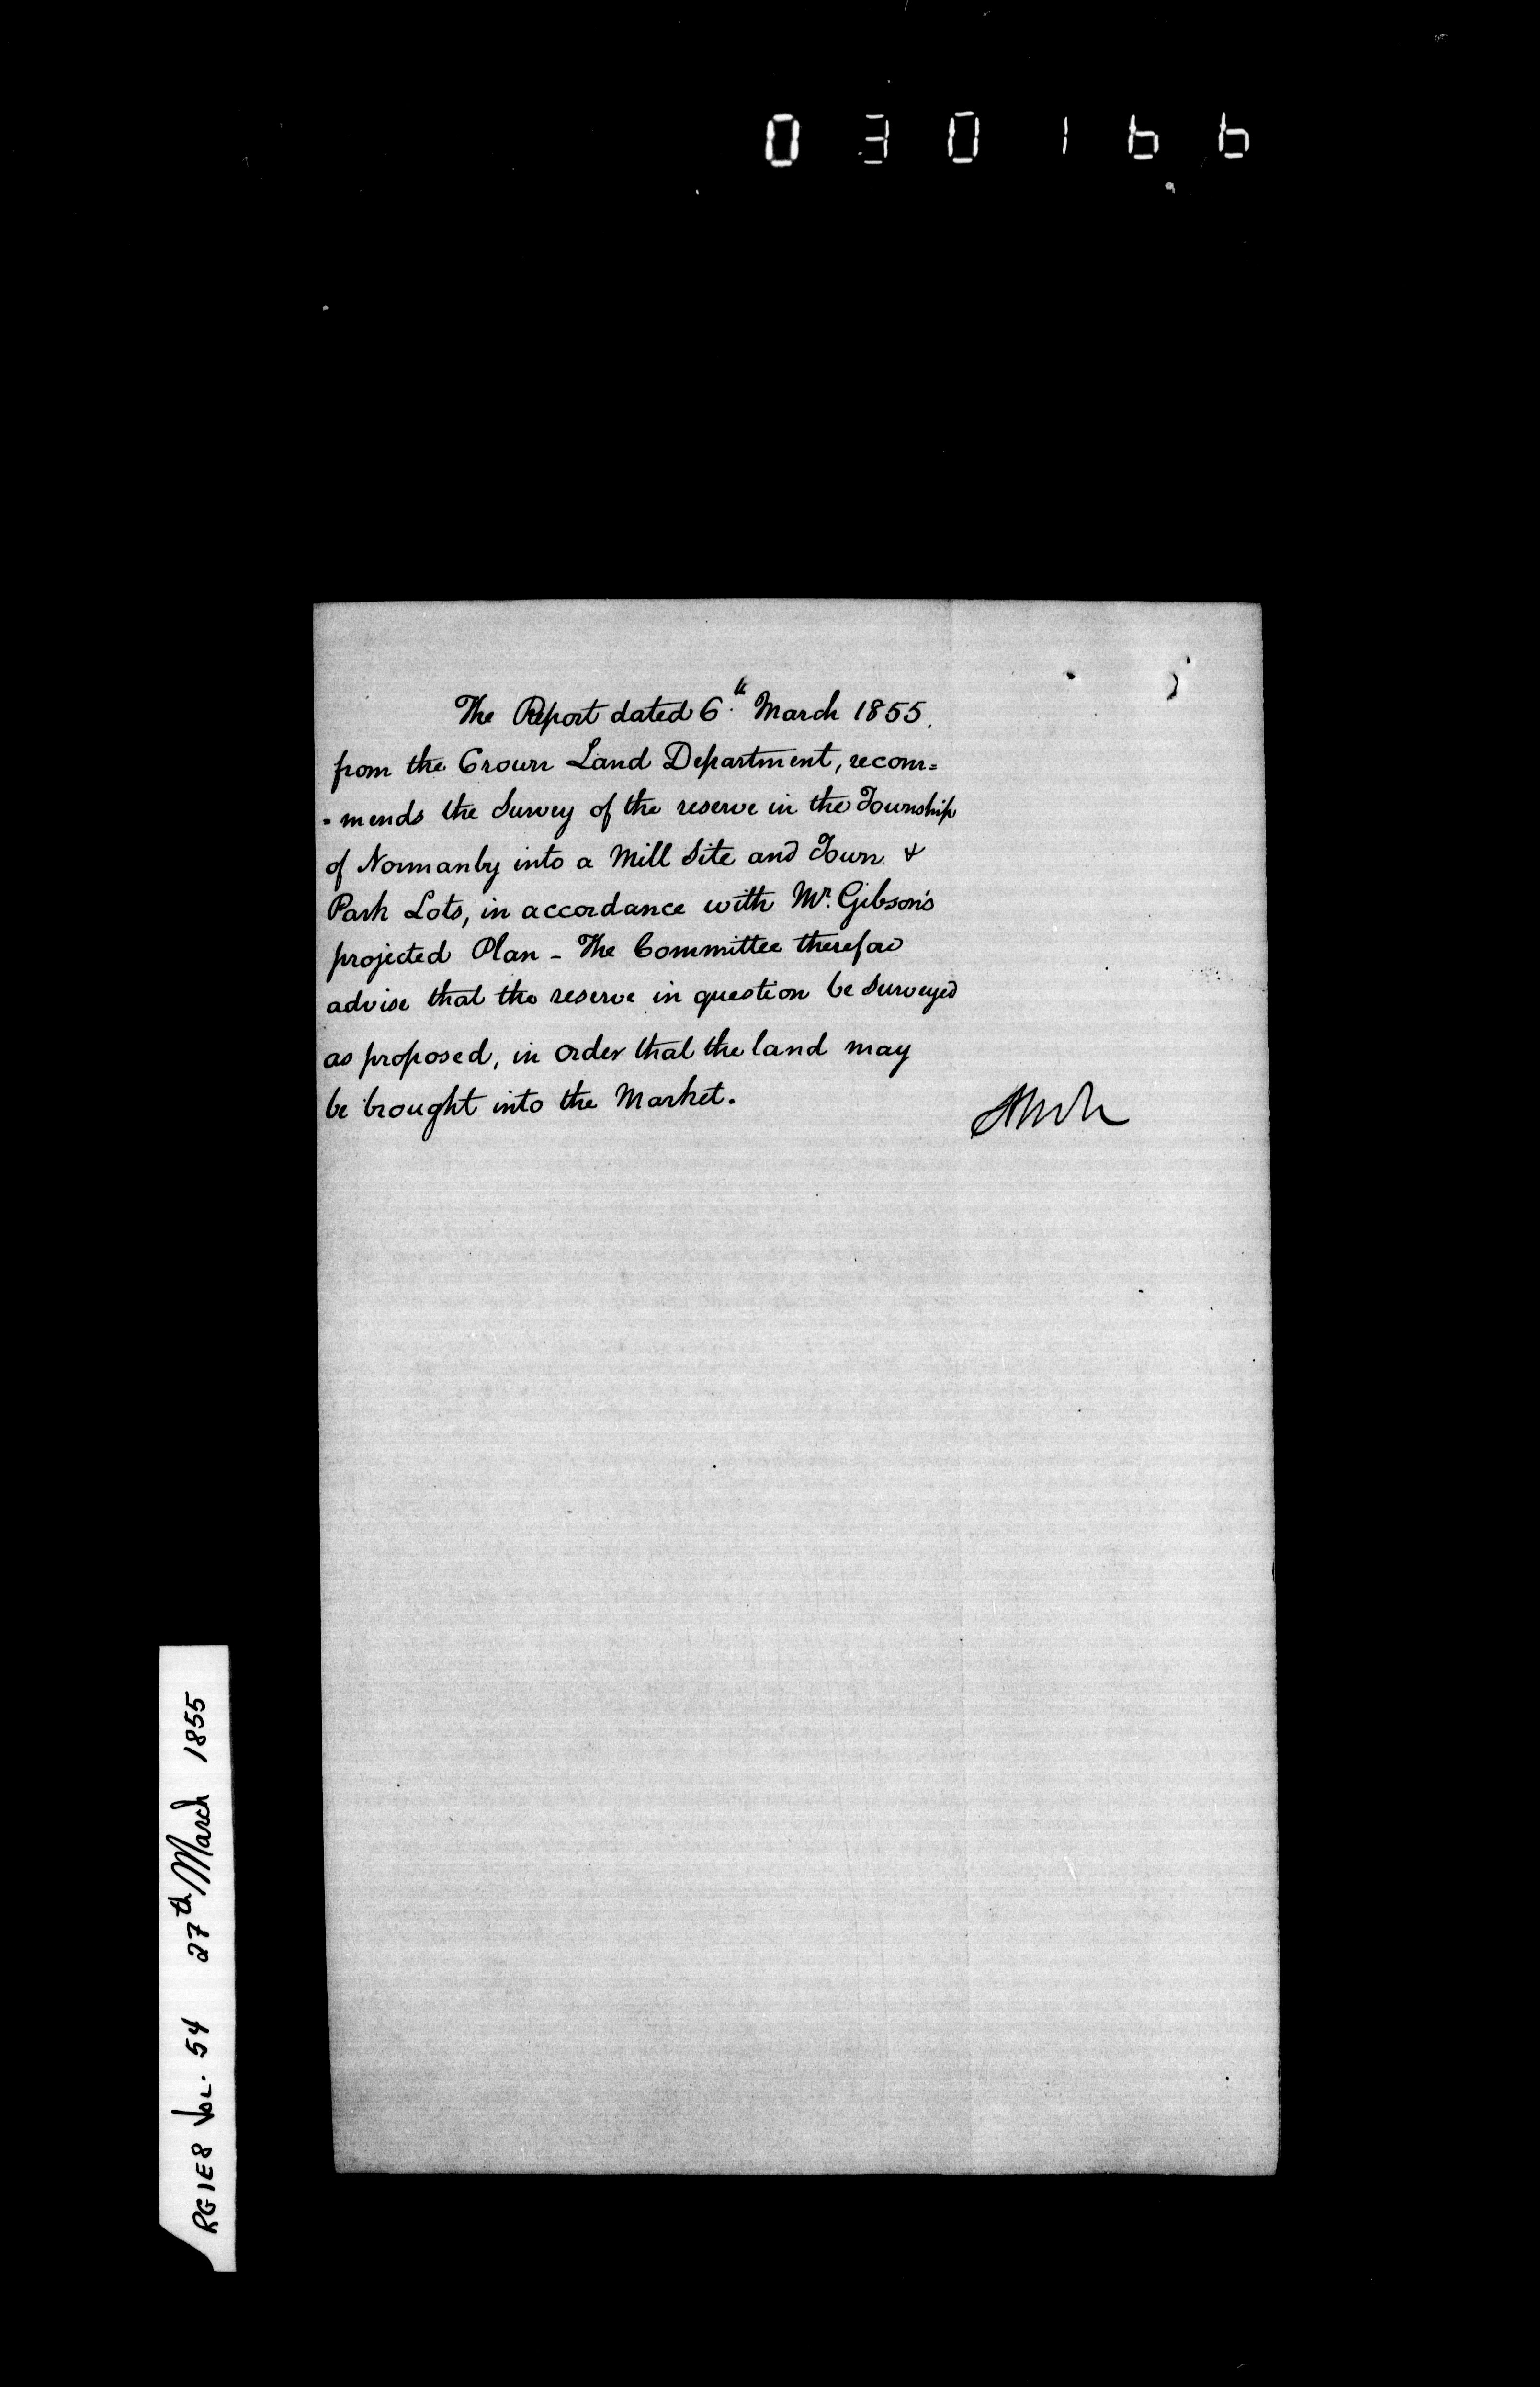 030166
The Report dated 6th March 1855.
from the Crown Land Department, recom=
=mends the Survey of the reserve in the Township
of Normanby into a Mill Site and Town &
Park Lots, in accordance with Mr. Gibson's
projected Plan - The Committee therefore
advise that the reserve in question be surveyed
as proposed, in order that the land may
be brought into the Market.
RG1E8 Vol. 54 27th March 1855